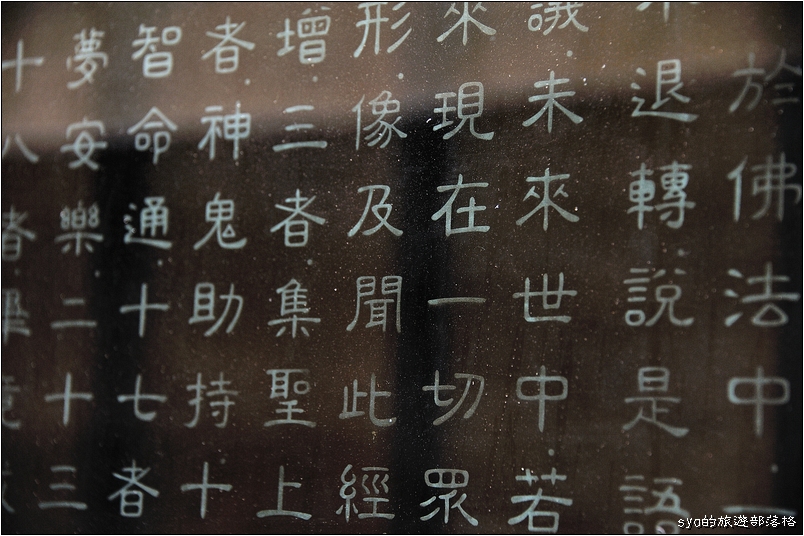 於佛法中
不退轉說是語
議未來來世中若
來現在一切眾
形像及聞此經
增三者集聖上
者神鬼助持十
智命通十七者
夢安樂二十三
十八者畢竟
sya的旅遊部落格